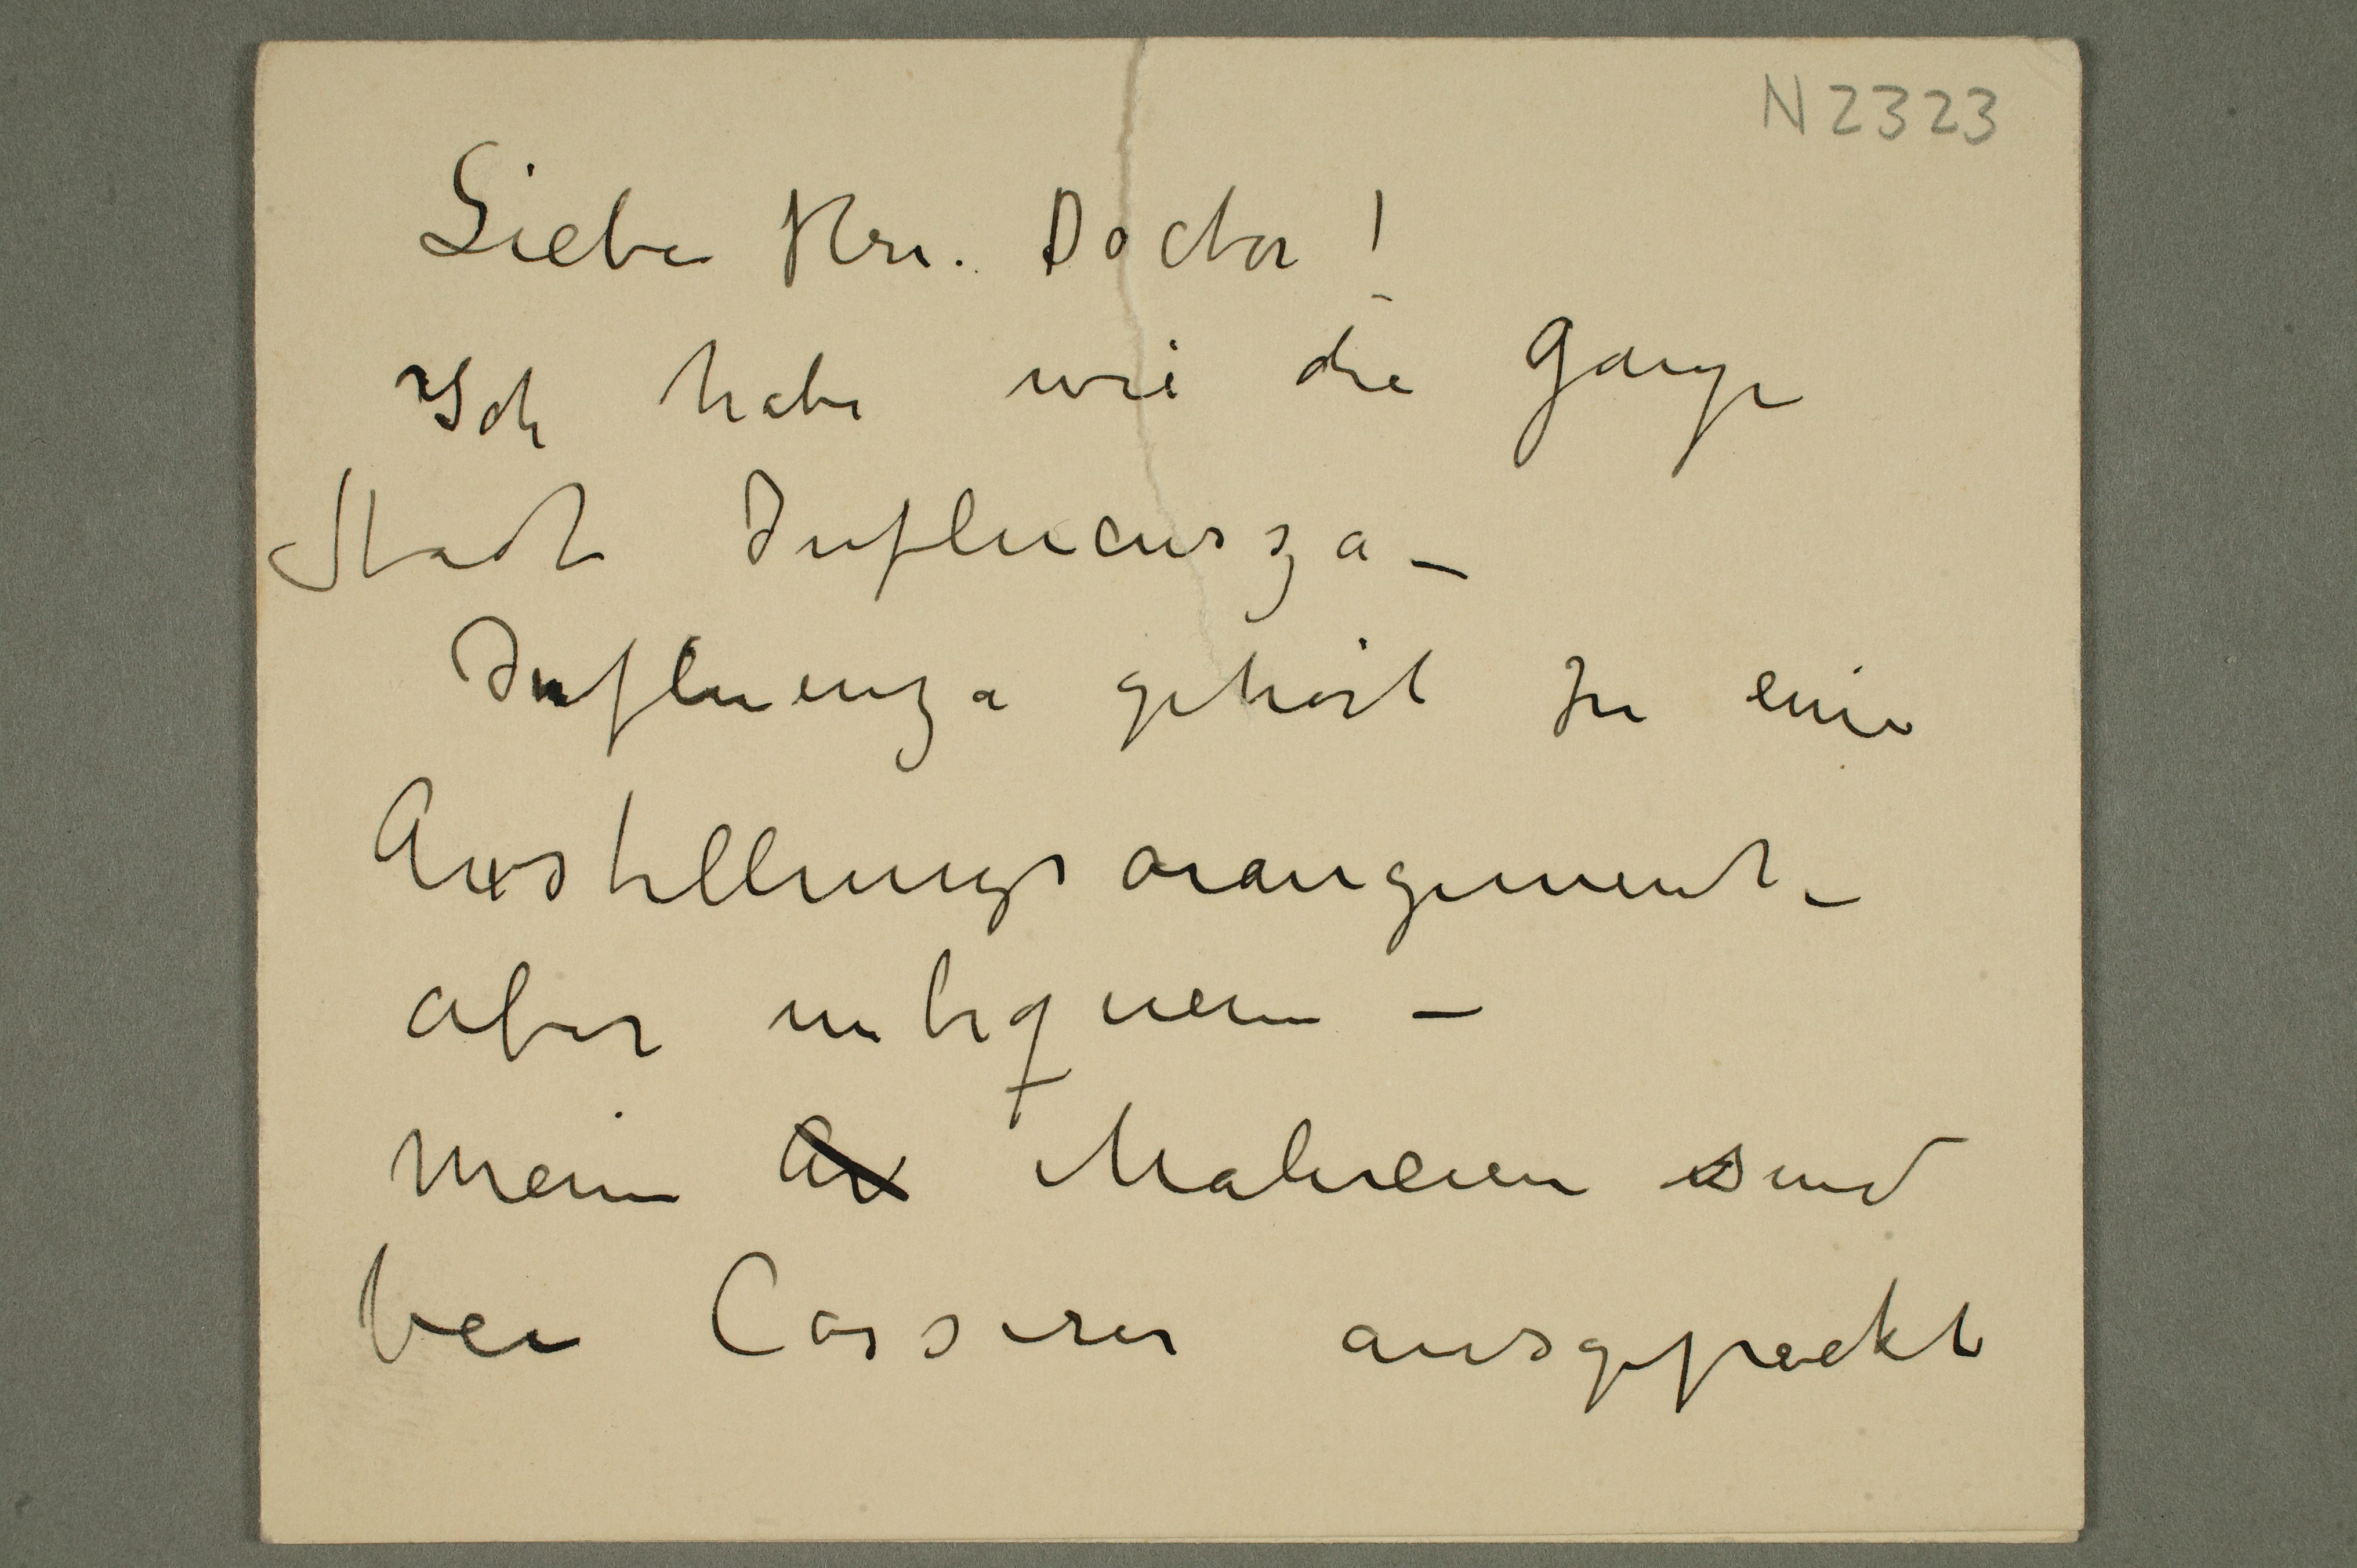 N 2323
Lieber Hrr. Doctor!
Ich habe wie die ganze
Stadt Influensza –
Influenza gehört zu eine
Austellungsarangement –
aber unbequem –
Meine Au Malereien sind
bei Cassirer ausgepackt